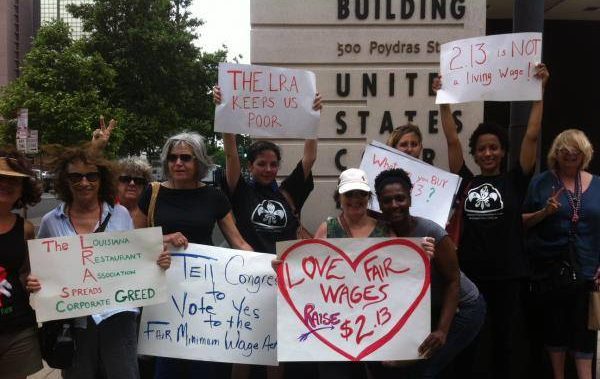 BUILDING
500 Poydras St
UNITED
STATES
2.13 is NOT
a living Wage!
THE LRA
KEEPS US
POOR
The Louisiana
Restaurant
Association
Spreads
Corporate GREED
Tell Congress
to
Vote Yes
to the
Fair Minimum Wage Act
LOVE FAIR
WAGES
RAISE
$2.13